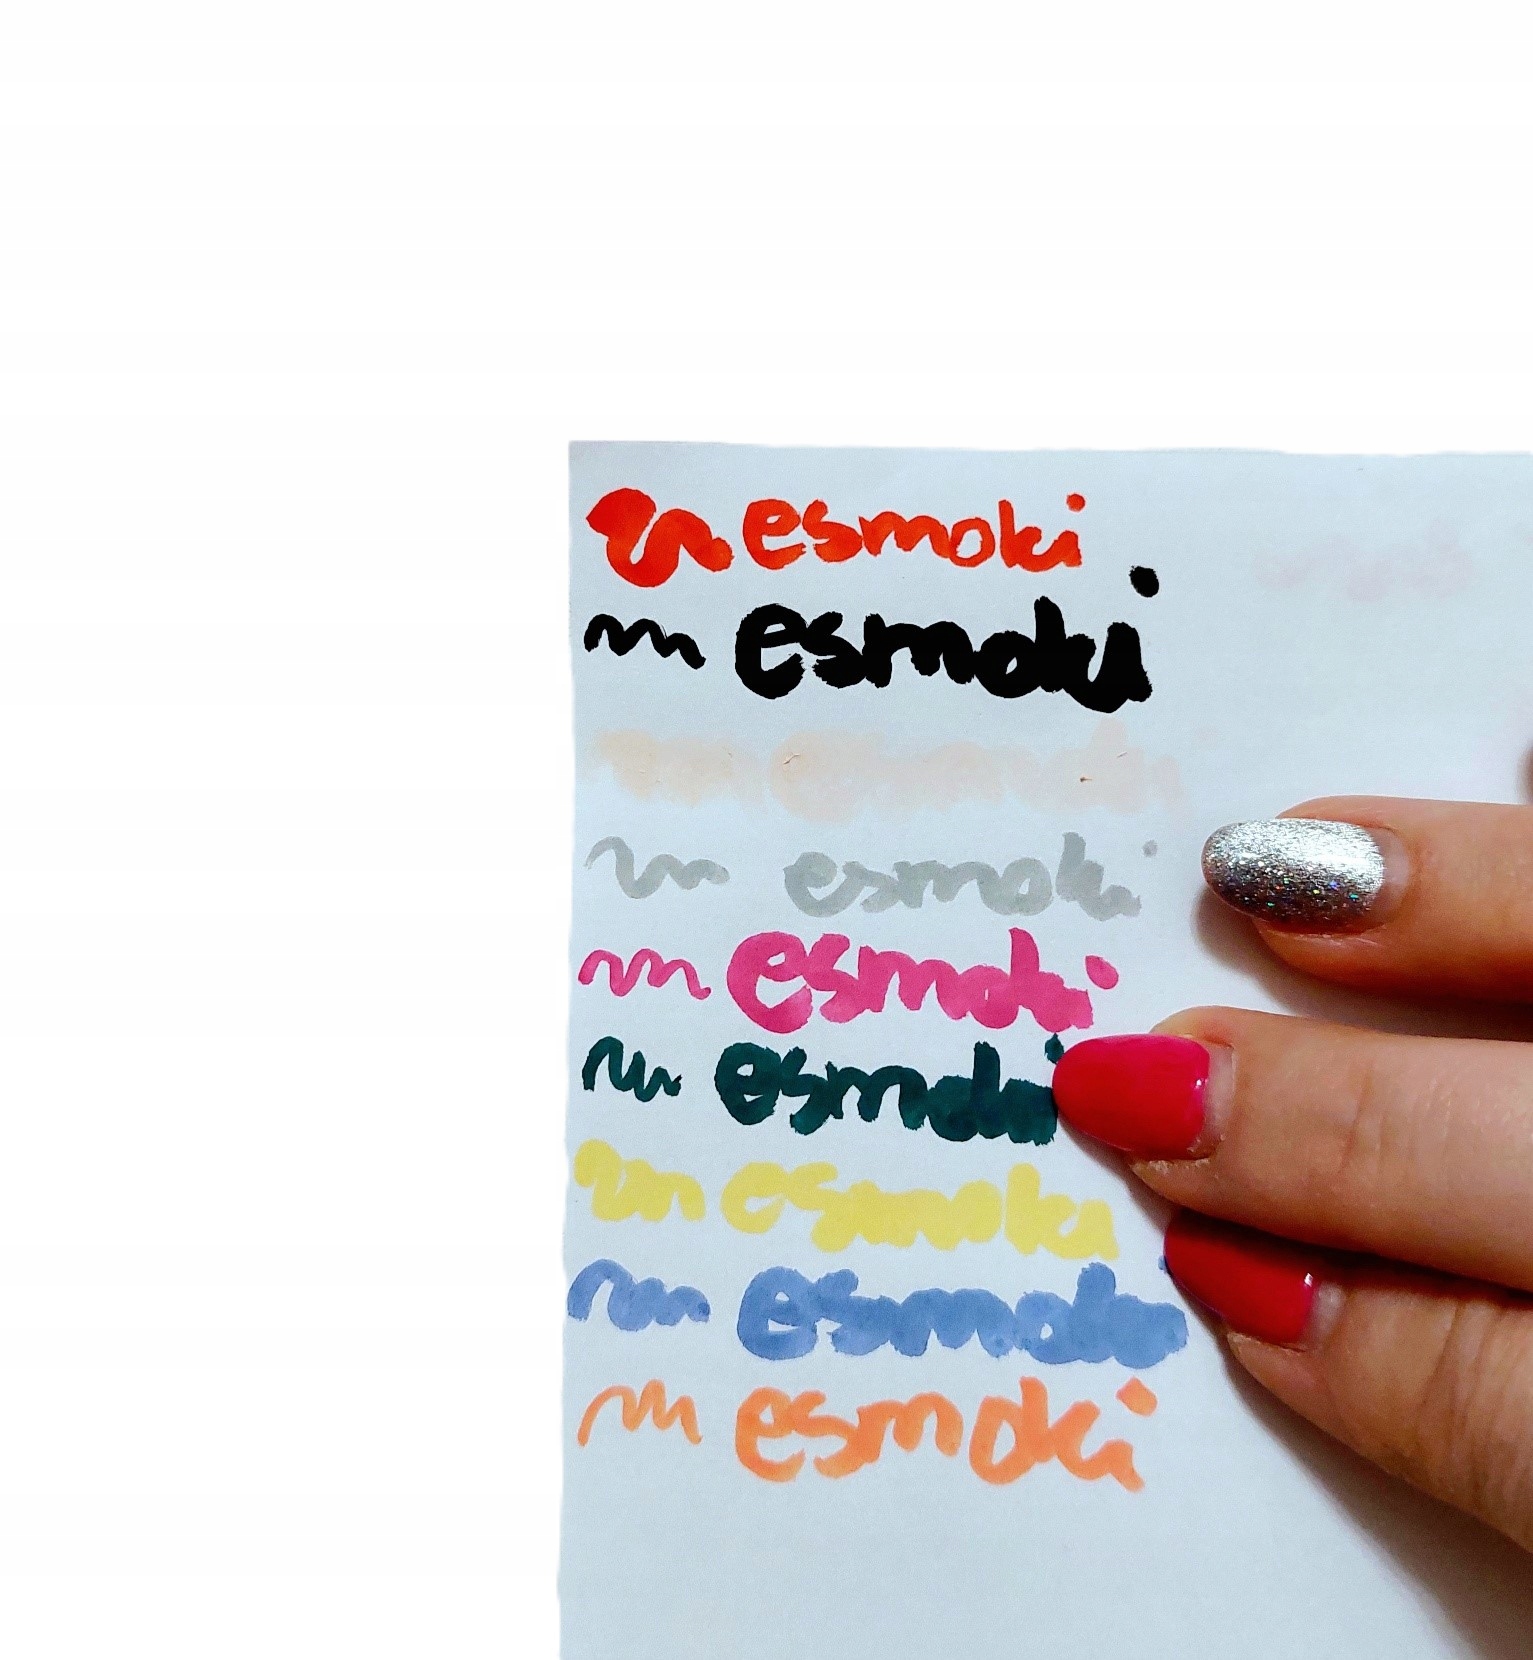 esmoki
esmoki
esmoki
esmoki
esmoki
esmoki
esmoki
esmoki
esmoki